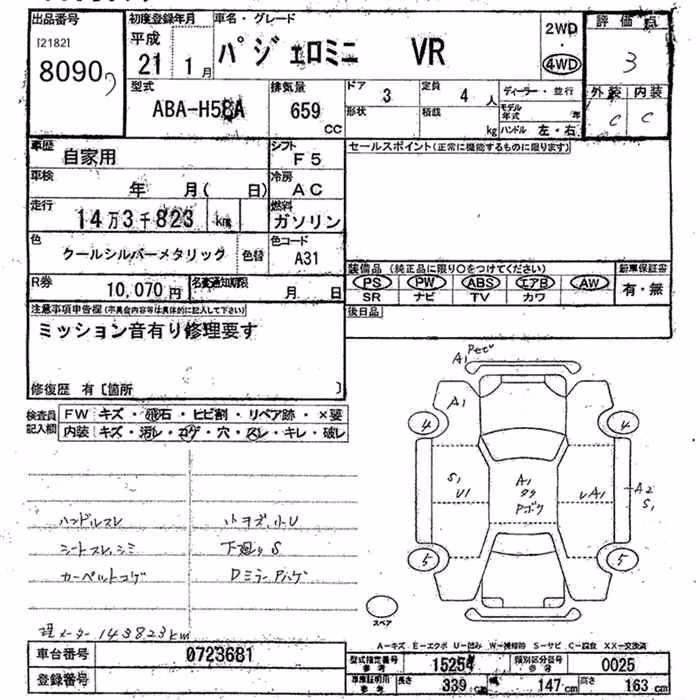 出品番号 初度登録年月 車名・グレード 2WD ・ 4WD 評価点
[2182] 平成 21年 1月 パジェロミニ VR 3
8090
型式 排気量 ドア 3 定員 4人 ディーラー・並行 外装 内装
ABA-H58A 659 CC 形状 積載 kg モデル年式 年 C C
ハンドル 左・右
車歴 自家用 シフト F5 セールスポイント(正常に機能するものに限ります)
車検 年 月( 日) 冷房 AC
走行 14万3千823 km 燃料 ガソリン
色 クールシルバーメタリック 色替 色コード A31
装備品 (純正品に限り○をつけてください) 新車保証書
PS PW ABS エアB AW 有・無
SR ナビ TV カワ
R券 10,070円 名変通知期限 月 日
後日品
注意事項申告欄(不具合内容等は具体的に記入して下さい)
ミッション音有り修理要す
修復歴 有〔箇所 〕
検査員 FW キズ・飛石・ヒビ割・リペア跡・×要
記入欄 内装 キズ・汚レ・コゲ・穴・スレ・キレ・破レ
A1
A1
4 4
S1 A1 A1 A2
U1 S1
5 5
スペア
ハンドルスレ 小キズ,小U
シートスレ,シミ 下廻りS
カーペットコゲ DミラーPハゲ
現メーター143823km
A-キズ E-エクボ U-凹み W-補修跡 S-サビ C-腐食 XX-交換済
車台番号 0723681 型式指定番号 参考 15254 類別区分番号 参考 0025
登録番号 車庫証明用 参考 長さ 339 cm 幅 147 cm 高さ 163 cm